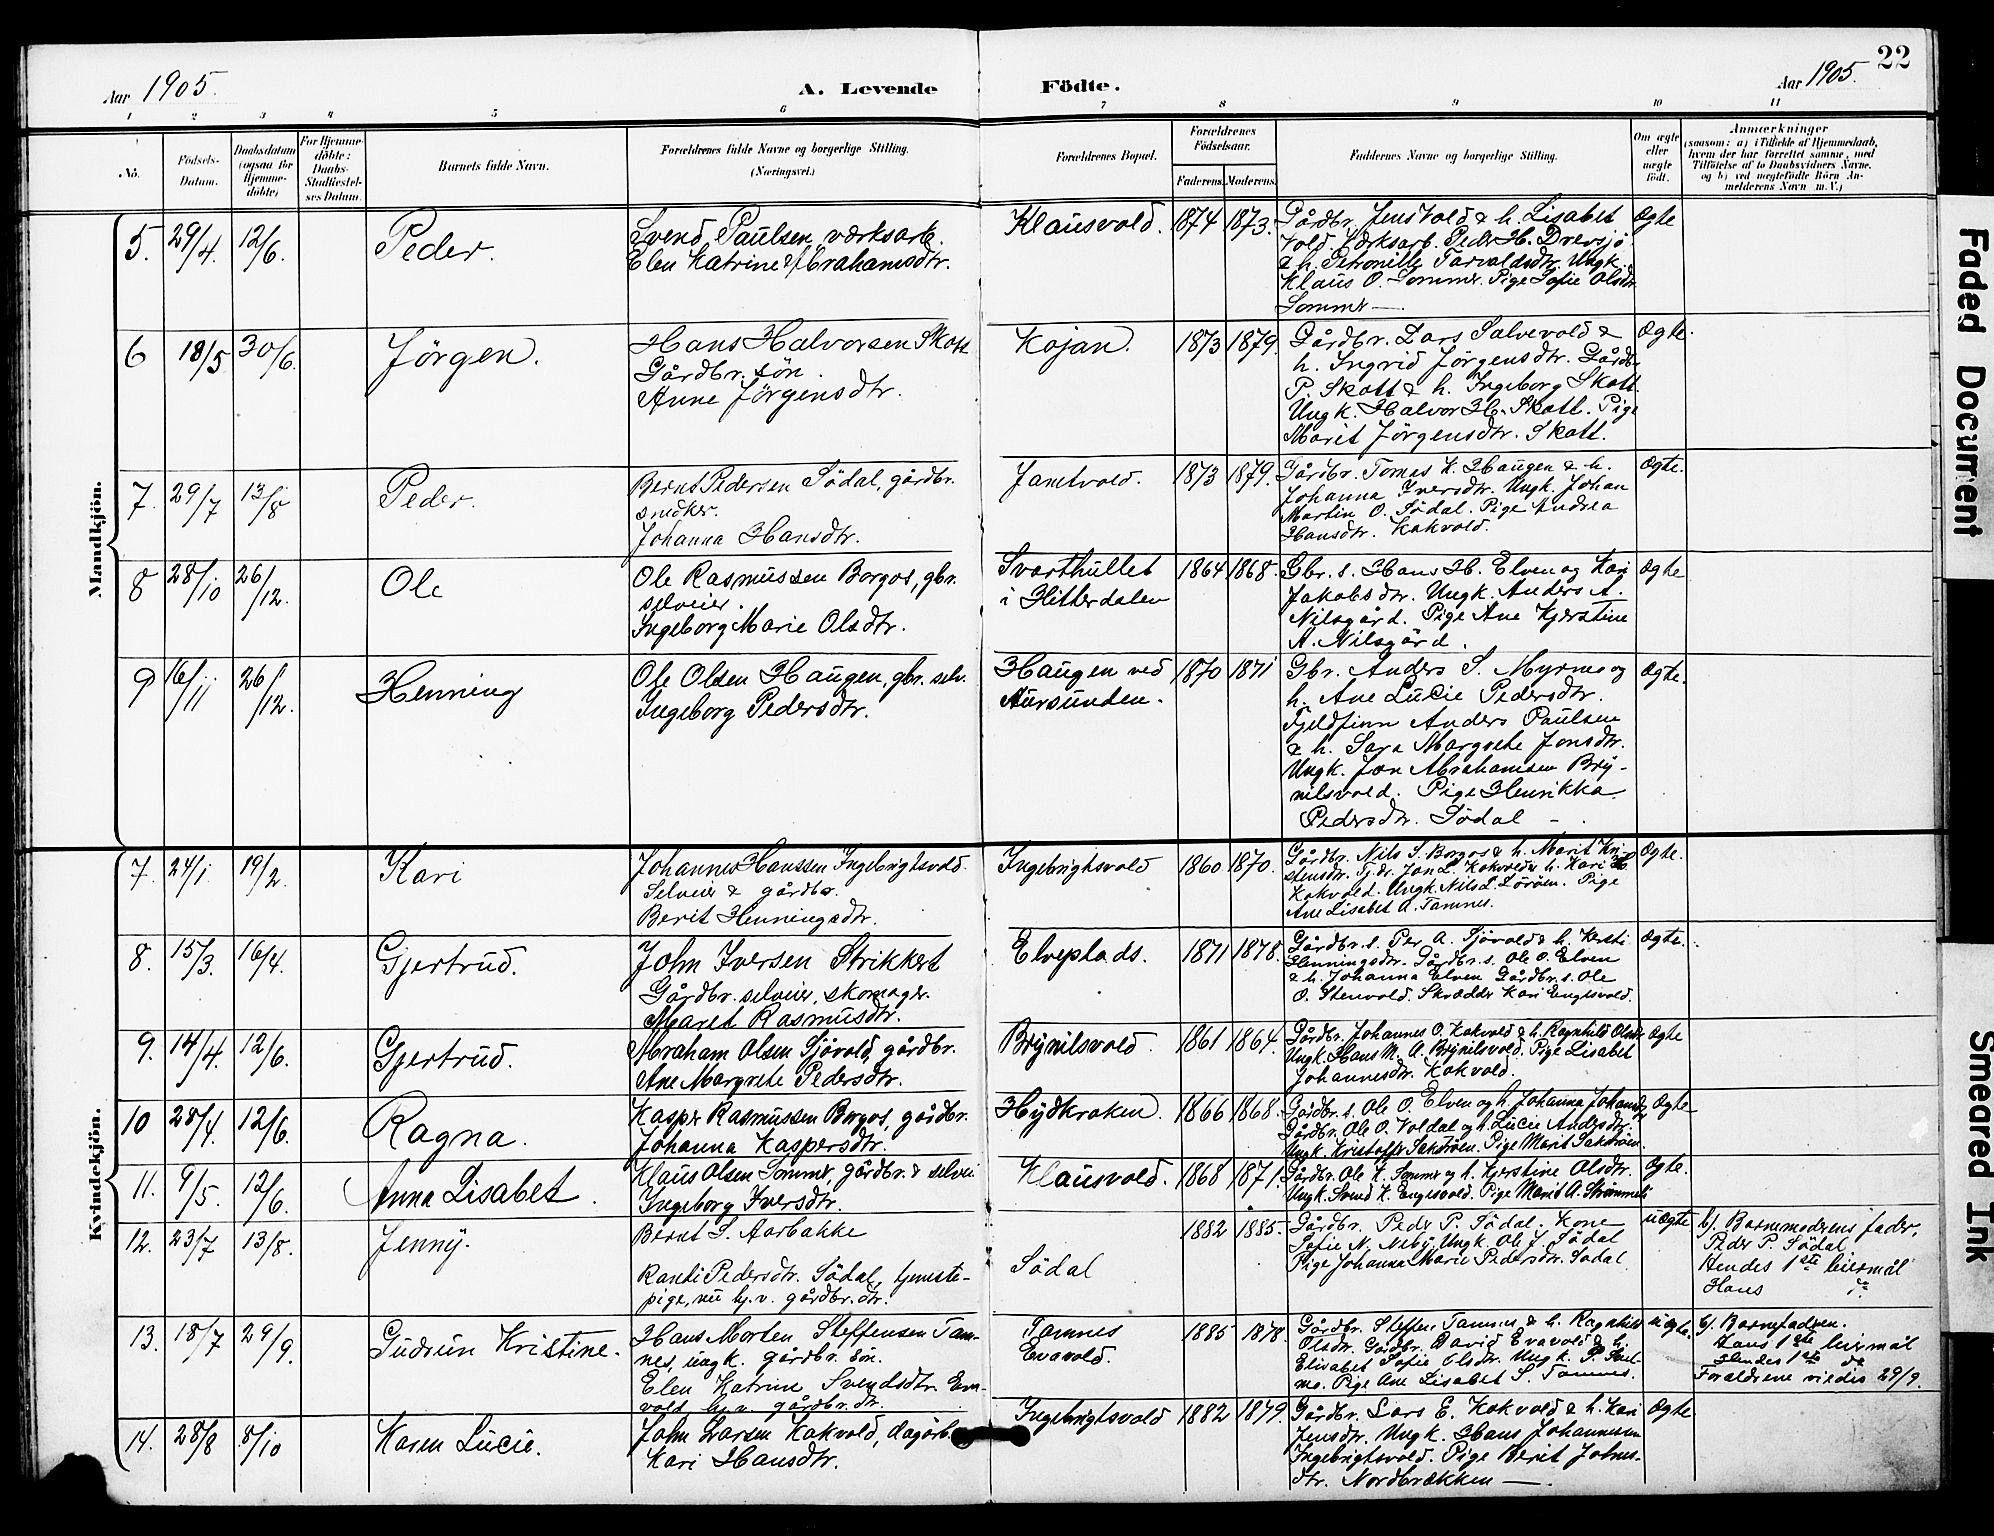 Aar 1905.
A. Levende Födte.
Aar 1905. 22
1 2 3 4 5 6 7 8 9 10 11
No.
Födsels-Datum.
Daabsdatum (ogsaa for Hjemme-döbte)
For Hjemme-döbte: Daabs-Stadfæstel-ses Datum.
Barnets fulde Navn.
Forældrenes fulde Navne og borgerlige Stilling. (Næringsvei.)
Forældrenes Bopæl.
Forældrenes Födselsaar.
Faderens. Moderens.
Faddernes Navne og borgerlige Stilling.
Om ægte eller uægte födt.
Anmærkninger
(saasom: a) i Tilfælde af Hjemmedaab,
hvem der har forrettet samme, med
Tilföielse af to Daabsvidners Navne.
og b) ved uægtefödte Börn An-
melderens Navn m. V.)
Mandkjön.
5. 29/4. 12/6. Peder.
Svend Paulsen, værksarb.
Elen Katrine Abrahamsdtr.
Klausvold. 1874 1873.
Gårdbr. Jens Vold & h. Lisabet
Vold. Værksarb. Peder H. Drevsjø
& h. Petronille Tarvaldsdtr. Ungk.
Klaus O. Sommer. Pige Sofie Olsdtr.
Sommer —
Ægte
6 18/5 30/6. Jörgen.
Hans Halvorsen Skott
Gårdbr. sön.
Anne Jörgensdtr.
Kojan. 1873 1879.
Gårdbr. Lars Salvevold &
h. Ingrid Jörgensdtr. Gårdbr.
P. Skott & h. Ingeborg Skott.
Ungk. Halvor H. Skott. Pige
Marit Jörgensdtr. Skott.
Ægte.
7. 29/7 13/8 Peder.
Bernt Pedersen Södal, gårdbr.
snedker.
Johanna Hansdtr.
Jamtvold. 1873 1879.
Gårdbr. Tomas K. Haugen & h.
Johanna Iversdtr. Ungk. Johan
Martin O. Södal. Pige Andrea
Hansdtr. Kokvold.
Ægte.
8 28/10 26/12. Ole
Ole Rasmussen Borgos, gbr.
selveier.
Ingeborg Marie Olsdtr.
Svarthullet
i Hitterdalen
1864 1868.
Gbr. s. Hans H. Elven og Kari
Jakobsdtr. Ungk. Anders A.
Nilsgård. Pige Ane Kjerstine
A. Nilsgård.
Ægte
9 16/11 26/12. Henning
Ole Olsen Haugen, gbr. selv.
Ingeborg Pedersdtr.
Haugen ved
Aursunden.
1870 1871
Gbr. Anders S. Myrmo og
h. Ane Lucie Pedersdtr.
Fjeldfinn Anders Paulsen
& h. Sara Margrete Jonsdtr.
Ungk. Jon Abrahamsen Bry-
nilsvold. Pige Henrikka
Pedersdtr. Södal —
Ægte.
Kvindekjön.
7. 24/1. 19/2. Kari
Johannes Hanssen Ingebrigtsvold.
Selveier & gårdbr.
Berit Henningsdtr.
Ingebrigtsvold 1860 1870.
Gårdbr. Nils S. Borgos & h. Marit Kri-
stensdtr. Jon L. Kokvold h. Kari
Kokvold. Ungk. Nils L. Pige
Ane Lisabet A. Tamnes.
Ægte.
8. 15/3. 16/4. Gjertrud.
John Iversen Strikkert
Gårdbr. selveier, skomager.
Maret Rasmusdtr.
Elveplads. 1871 1878.
Gårdbr. s. Per A. Sjövold & h. Kersti
Henningsdtr. Gårdbr. s. Ole O. Elven
& h. Johanna Elven Gårdbr. s. Ole
O. Stenvold. Skrædder Kari Engesvold.
Ægte.
9. 14/4. 12/6. Gjertrud.
Abraham Olsen Sjövold, gårdbr.
Ane Margrete Pedersdtr.
Brynilsvold. 1861 1864.
Gårdbr. Johannes O. Kokvold & h. Ragnhild Olsdtr.
Ungk. Hans M. A. Brynilsvold. Pige Lisabet
Johannesdtr. Kokvold.
Ægte
10 28/4. 12/6. Ragna.
Kasper Rasmussen Borgos, gårdbr.
Johanna Kaspersdtr.
Hydkroken. 1866 1868.
Gårdbr. s. Ole O. Elven og h. Johanna
Gårdbr. Ole O. Voldal og h. Lucie Andersdtr.
Ungk. Kristoffer Sakrisen. Pige Marit Sakrisen.
Ægte
11. 9/5. 12/6 Anna Lisabet.
Klaus Olsen Sommer, gårdbr. & selvei.
Ingeborg Iversdtr.
Klausvold. 1868 1871.
Gårdbr. Ole K. Sommer og h. Kjerstine Olsdtr.
Ungk. Svend K. Engesvold. Pige Marit A.
Ægte.
12. 23/7 13/8. Jenny.
Bernt S. Aarbakke
Ranti Pedersdtr. Södal, tjeneste-
pige, nu hj.v. gårdbr. dtr.
Södal
1882 1885.
Gårdbr. Peder P. Södal. Kone
Sofie N. Neby. Ungk. Ole J. Södal
Pige Johanna Marie Pedersdtr. Södal
uægte
b). Barnemoderens fader,
Peder P. Södal
Hendes 1ste leiermål
Hans do
13. 18/7 29/9. Gudrun Kristine.
Hans Morten Steffensen Tam-
nes, ungk. gårdbr. sön.
Elen Katrine Svendsdtr. Eva-
vold hj.v. gårdbr. dtr.
Tamnes
Evavold.
1885 1878.
Gårdbr. Steffen Tamnes & h. Ragnhild
Olsdtr. Gårdbr. David Evavold & h.
Elisabet Sofie Olsdtr. Ungk. P.
Pige Ane Lisabet S. Tamnes.
uægte.
b). Barnefaderen.
Hans 1ste leiermål
Hendes 1ste do
Forældrene viedes 29/9.
14. 28/8 8/10 Karen Lucie.
John Larsen Kokvold, dagarb.
Kari Hansdtr.
Ingebrigtsvold 1882 1879.
Gårdbr. Lars E. Kokvold & h. Kari
Jensdtr. Ungk. Hans Johannessen
Ingebrigtsvold. Pige Berit Johns-
dtr. Nordbrækken —
Ægte.
Faded Document
Smeared Ink